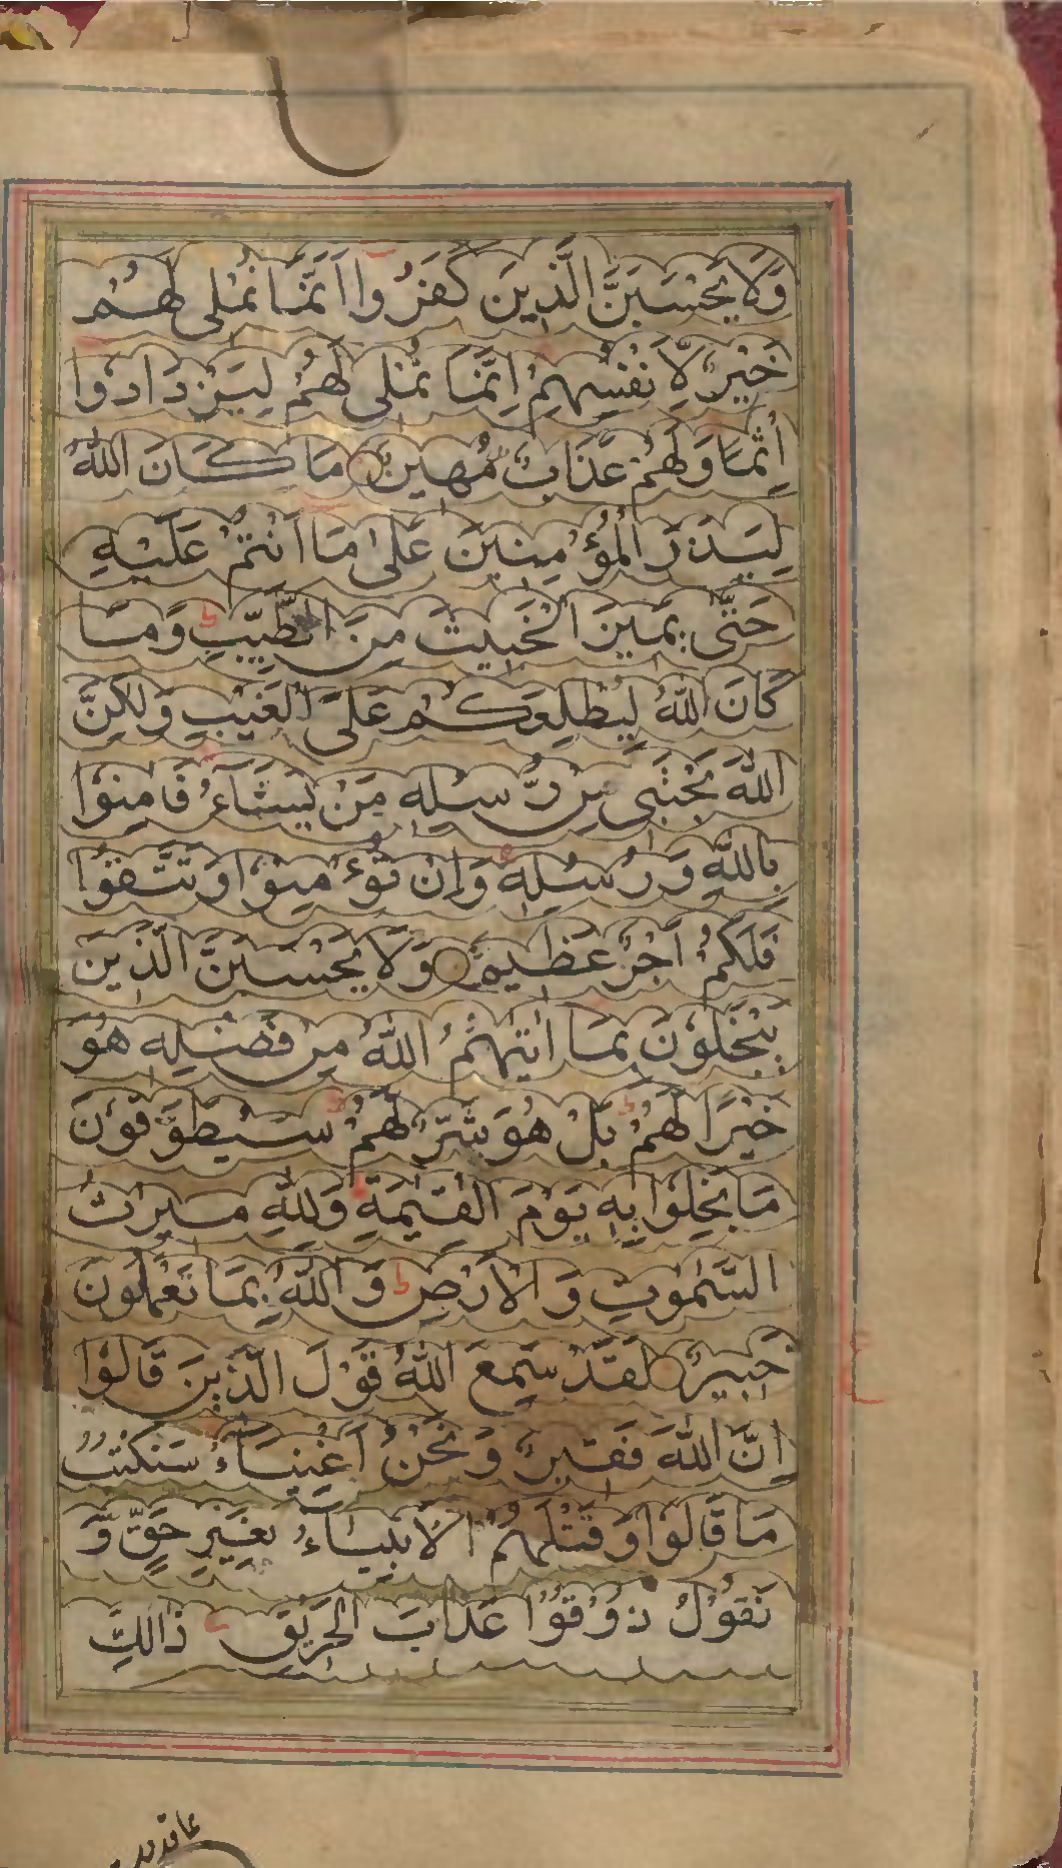 وَلَا يَحْسَبَنَّ الَّذِينَ كَفَرُوا أَنَّمَا نُمْلِي لَهُمْ
خَيْرٌ لِّأَنفُسِهِمْ إِنَّمَا نُمْلِي لَهُمْ لِيَزْدَادُوا
إِثْمًا وَلَهُمْ عَذَابٌ مُّهِينٌ مَا كَانَ اللهُ
لِيَذَرَ الْمُؤْمِنِينَ عَلىٰ مَا أَنْتُمْ عَلَيْهِ
حَتّٰى يَمِيزَ الْخَبِيثَ مِنَ الطَّيِّبِ وَمَا
كَانَ اللهُ لِيُطْلِعَكُمْ عَلَى الْغَيْبِ وَلٰكِنَّ
اللهَ يَجْتَبِي مِن رُّسُلِهِ مَنْ يَشَآءُ فَاٰمِنُوْا
بِاللهِ وَرُسُلِهِ وَاِنْ تُؤْمِنُوْا وَتَتَّقُوْا
فَلَكُمْ اَجْرٌ عَظِيمٌ وَلَا يَحْسَبَنَّ الَّذِينَ
يَبْخَلُوْنَ بِمَا اٰتٰىهُمُ اللهُ مِن فَضْلِهِ هُوَ
خَيْرًا لَهُمْ بَلْ هُوَ شَرٌّ لَهُمْ سَيُطَوَّقُوْنَ
مَا بَخِلُوْا بِهِ يَوْمَ الْقِيٰمَةِ وَلِلّٰهِ مِيرٰثُ
السَّمٰوٰتِ وَالْاَرْضِ وَاللهُ بِمَا تَعْمَلُونَ
خَبِيرٌ لَقَدْ سَمِعَ اللهُ قَوْلَ الَّذِينَ قَالُوْا
اِنَّ اللهَ فَقِيرٌ وَنَحْنُ اَغْنِيَآءُ سَنَكْتُبُ
مَا قَالُوْا وَقَتْلَهُمُ الْاَنْبِيَآءَ بِغَيْرِ حَقٍّ وَّ
نَقُوْلُ ذُوْقُوْا عَذَابَ الْحَرِيْقِ ذَالِكَ